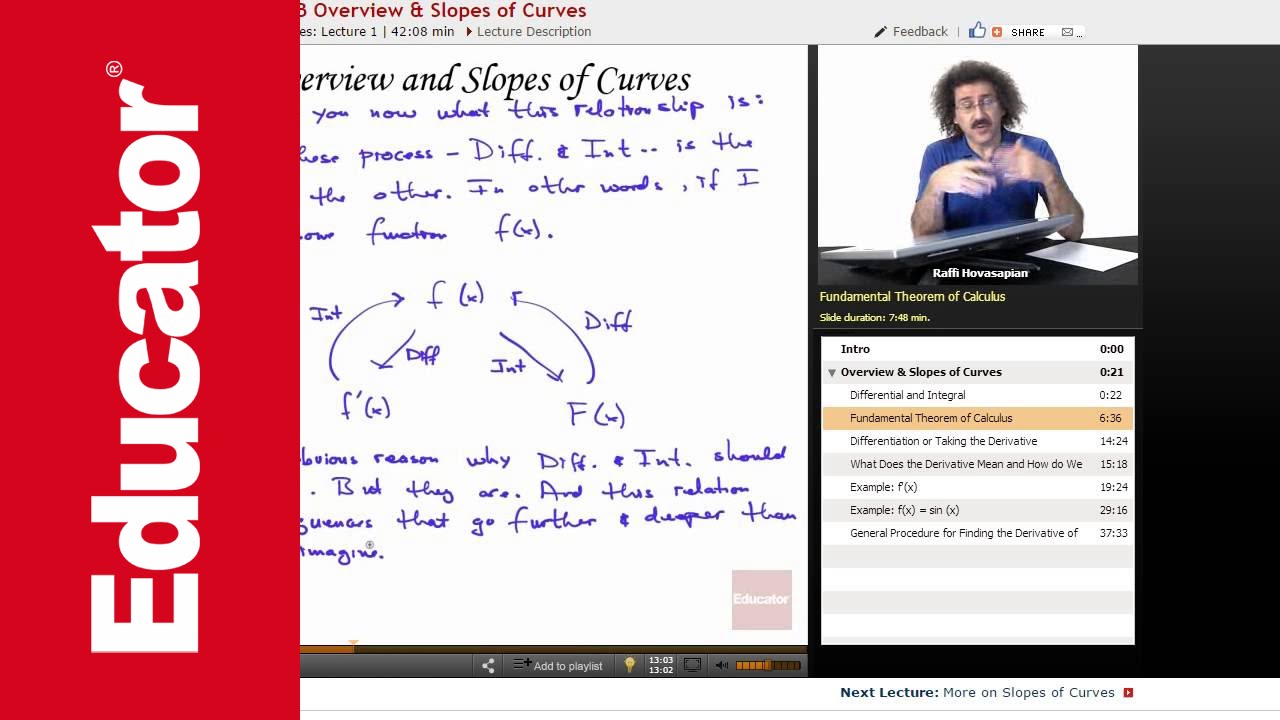 Educator®
B Overview & Slopes of Curves
es: Lecture 1 | 42:08 min Lecture Description
Feedback | SHARE ...
erview and Slopes of Curves
you now what this relationship is:
hese process - Diff. & Int .. is the
the other. In other words, if I
some function f(x).
Int f(x) Diff
Diff Int
f'(x) F(x)
bvious reason why Diff. & Int. should
. But they are. And this relation
quences that go further & deeper than
imagine.
Educator
Add to playlist
13:03
13:02
Raffi Hovasapian
Fundamental Theorem of Calculus
Slide duration: 7:48 min.
Intro 0:00
Overview & Slopes of Curves 0:21
Differential and Integral 0:22
Fundamental Theorem of Calculus 6:36
Differentiation or Taking the Derivative 14:24
What Does the Derivative Mean and How do We 15:18
Example: f'(x) 19:24
Example: f(x) = sin (x) 29:16
General Procedure for Finding the Derivative of 37:33
Next Lecture: More on Slopes of Curves